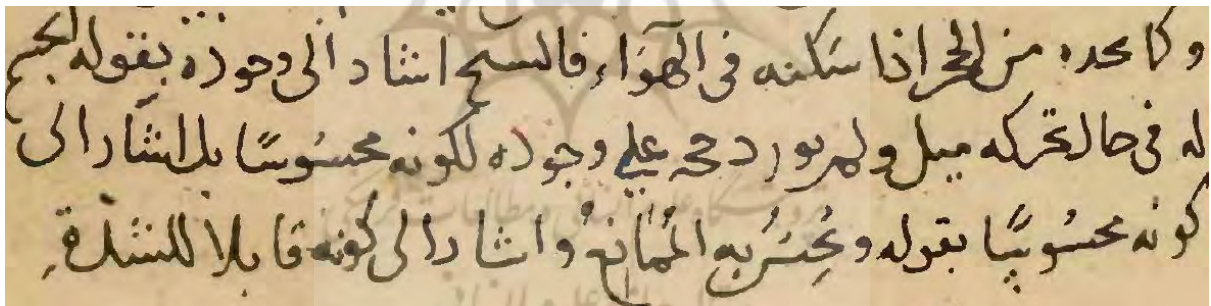 وكما نجده من الحجر اذا سكنته فى الهوَاء فالشيخ اشار الى وجوده بقوله الجسم
له فى حال تحركه ميل ولم يورد حجه على وجوده لكونه محسُوسًا بل اشار الى
كونه محسُوسًا بقوله ويُحِسّ به المُمانِعُ واشار الى كونه قابلا للشدة